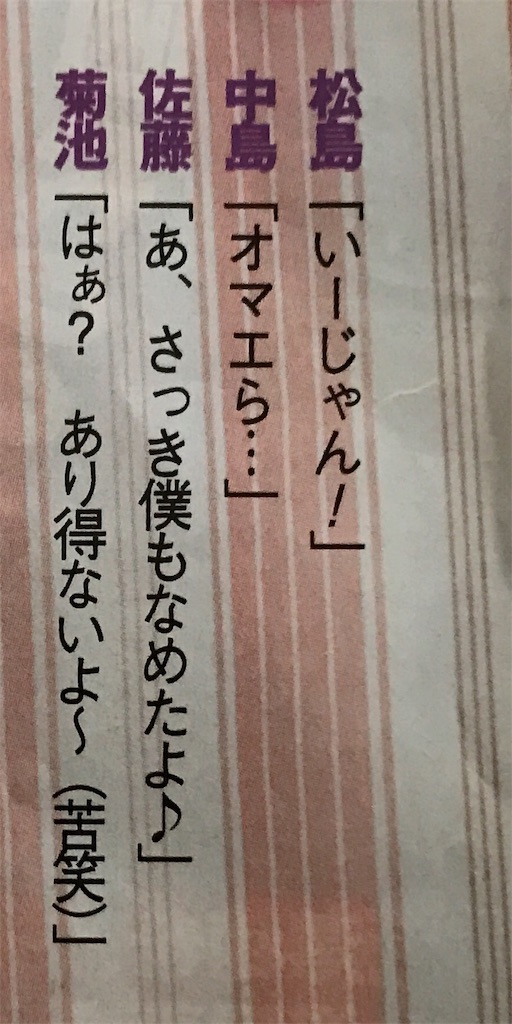 松島「いーじゃん!」
中島「オマエら…」
佐藤「あ、さっき僕もなめたよ♪」
菊池「はぁ? あり得ないよ〜(苦笑)」